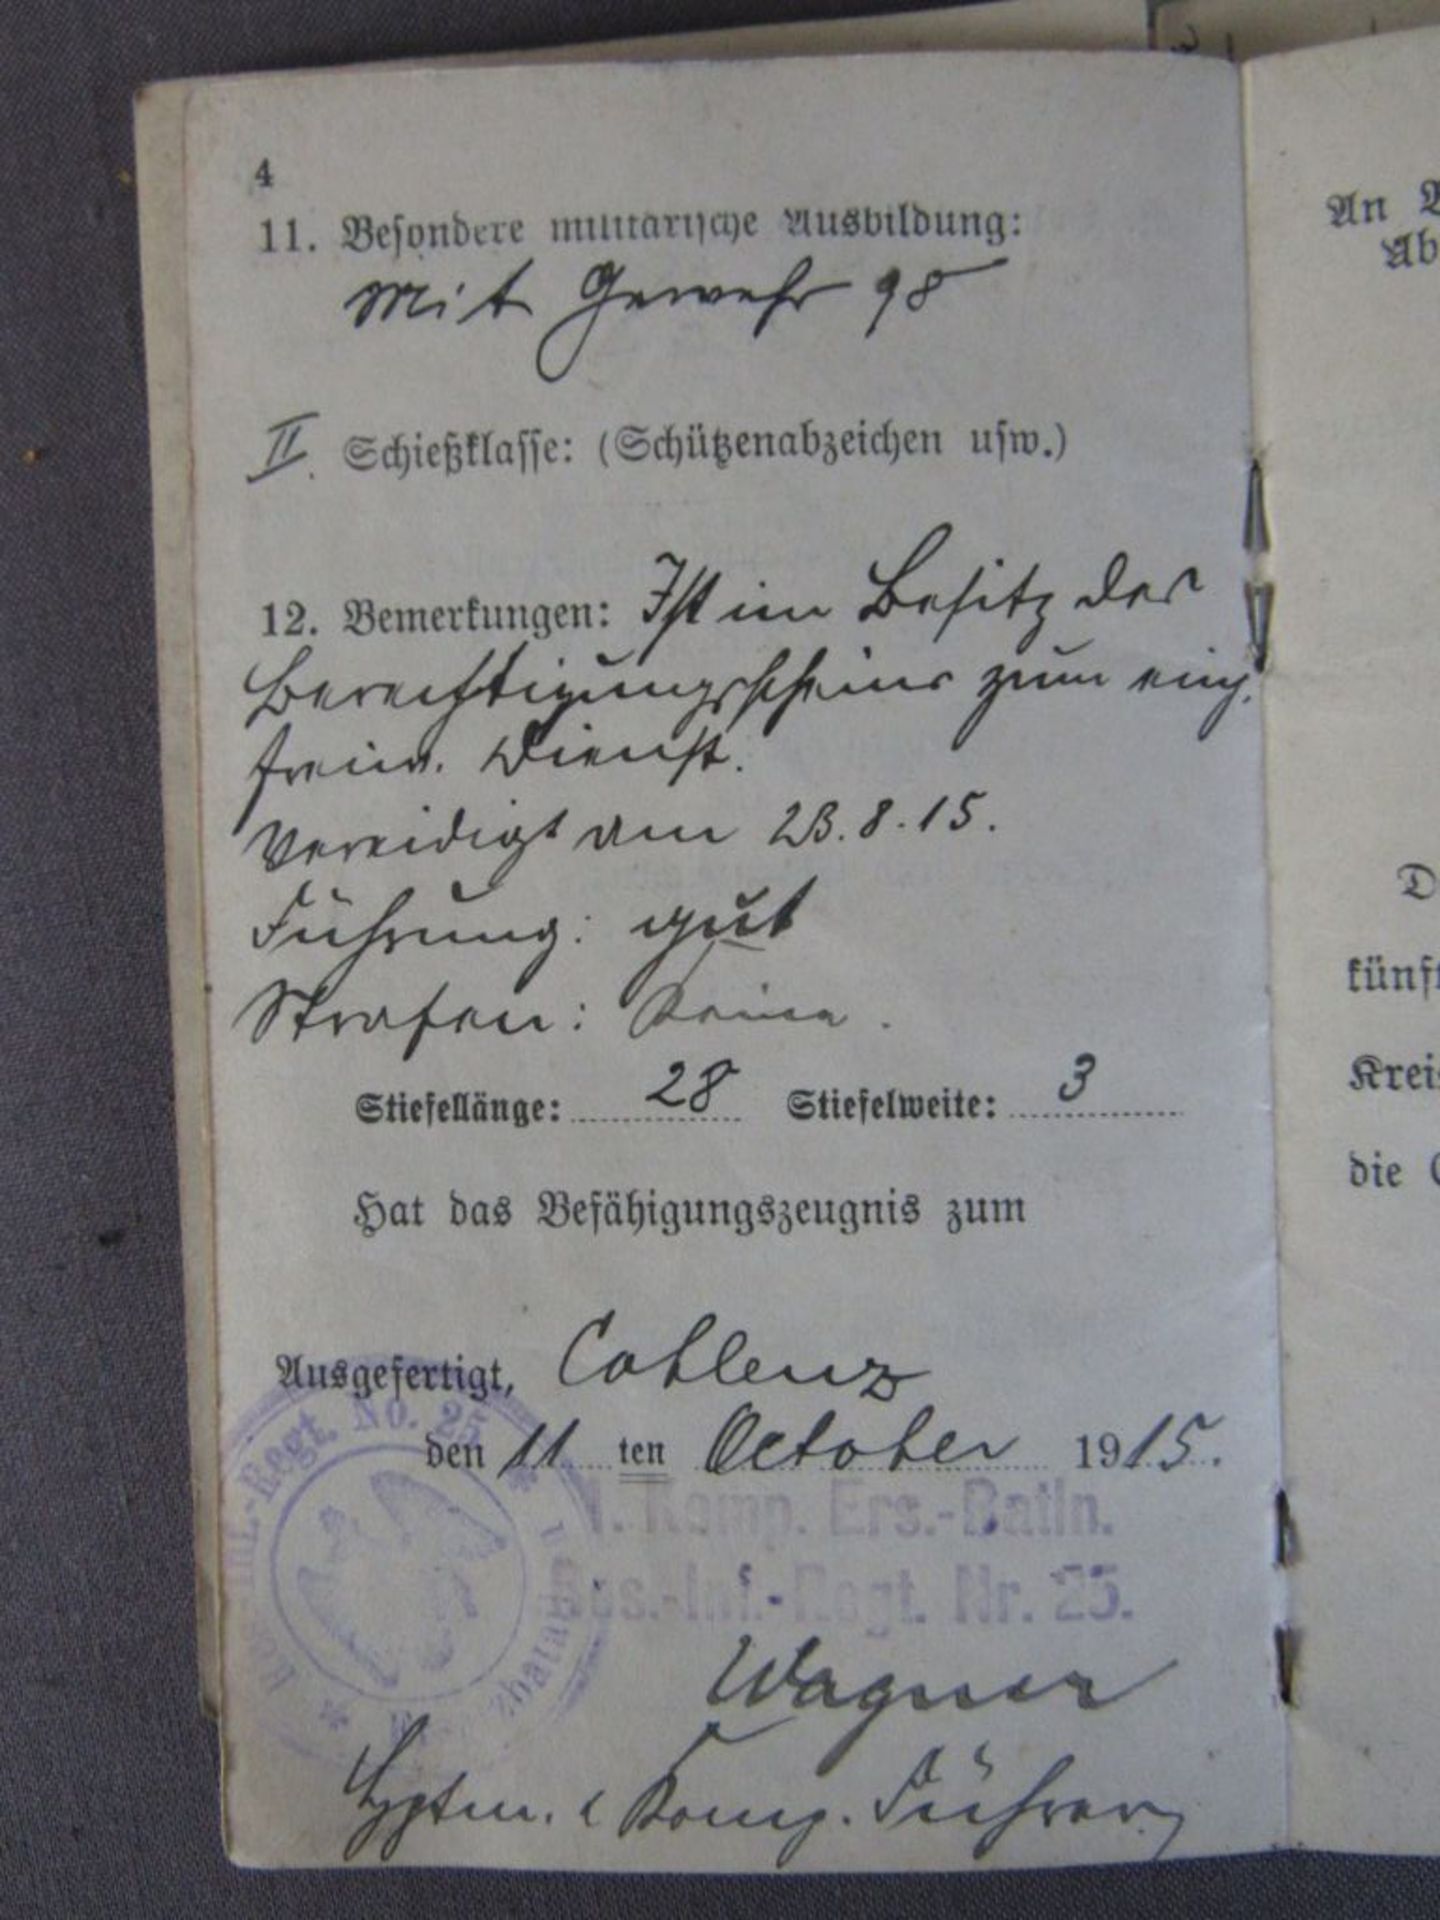 4
11. Besondere militärische Ausbildung:
Mit Gewehr 98
II. Schießklasse: (Schützenabzeichen usw.)
12. Bemerkungen: Ist im Besitz des
Berechtigungsscheins zum einj.
freiw. Dienst.
Vereidigt am 23.8.15.
Führung: gut
Strafen: Keine.
Stiefellänge: 28 Stiefelweite: 3
Hat das Befähigungszeugnis zum
Ausgefertigt, Coblenz
den 11 ten October 1915.
Res.-Inf.-Regt. No. 25
1. Komp. Ers.-Batln.
Res.-Inf.-Regt. Nr. 25.
Wagner
Hptm. & Komp. Führer
An
Ab
künft
Kreis
die